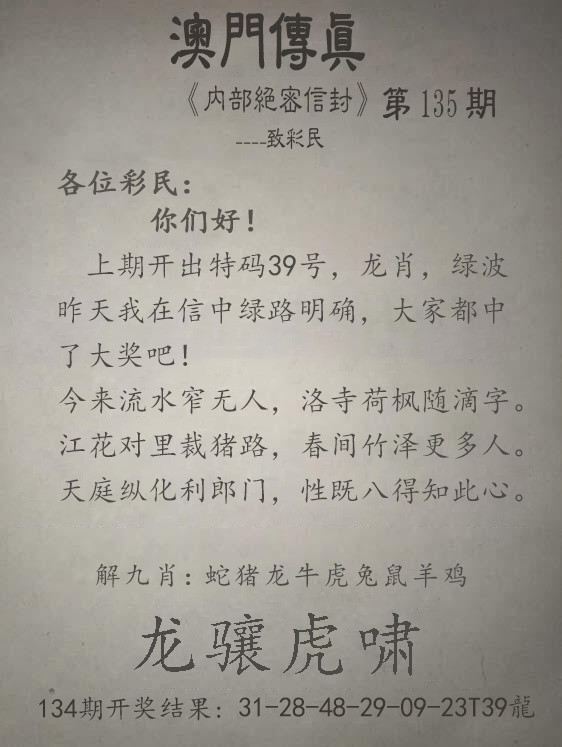 澳門傳真
《内部絕密信封》第135期
----致彩民
各位彩民：
你们好！
上期开出特码39号，龙肖，绿波
昨天我在信中绿路明确，大家都中
了大奖吧！
今来流水窄无人，洛寺荷枫随滴字。
江花对里裁猪路，春间竹泽更多人。
天庭纵化利郎门，性既八得知此心。
解九肖：蛇猪龙牛虎兔鼠羊鸡
龙骧虎啸
134期开奖结果：31-28-48-29-09-23T39龍